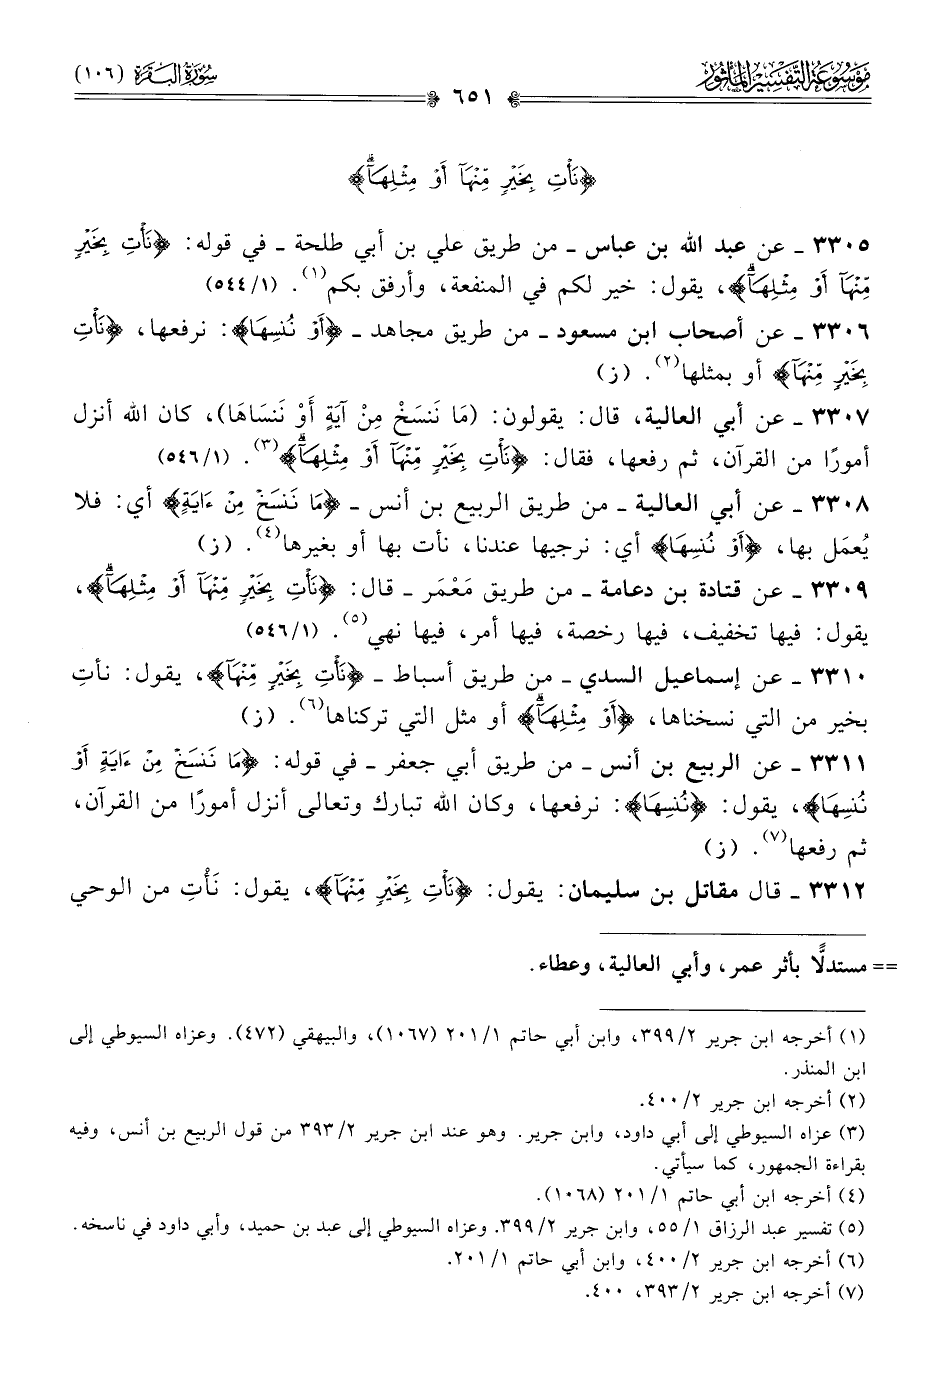 موسوعة التفسير المأثور
٦٥١
سورة البقرة (١٠٦)
﴿نَأْتِ بِخَيْرٍ مِّنْهَآ أَوْ مِثْلِهَآۗ﴾
٣٣٠٥ ـ عن عبد الله بن عباس ـ من طريق علي بن أبي طلحة ـ في قوله: ﴿نَأْتِ بِخَيْرٍ
مِّنْهَآ أَوْ مِثْلِهَآۗ﴾، يقول: خير لكم في المنفعة، وأرفق بكم(١). (٥٤٤/١)
٣٣٠٦ ـ عن أصحاب ابن مسعود ـ من طريق مجاهد ـ ﴿أَوْ نُنسِهَا﴾: نرفعها، ﴿نَأْتِ
بِخَيْرٍ مِّنْهَآ﴾ أو بمثلها(٢). (ز)
٣٣٠٧ ـ عن أبي العالية، قال: يقولون: (مَا نَنسَخْ مِنْ آيَةٍ أَوْ نَنسَاهَا)، كان الله أنزل
أمورًا من القرآن، ثم رفعها، فقال: ﴿نَأْتِ بِخَيْرٍ مِّنْهَآ أَوْ مِثْلِهَآۗ﴾(٣). (٥٤٦/١)
٣٣٠٨ ـ عن أبي العالية ـ من طريق الربيع بن أنس ـ ﴿مَا نَنسَخْ مِنْ ءَايَةٍ﴾ أي: فلا
يُعمَل بها، ﴿أَوْ نُنسِهَا﴾ أي: نرجيها عندنا، نأت بها أو بغيرها(٤). (ز)
٣٣٠٩ ـ عن قتادة بن دعامة ـ من طريق مَعْمَر ـ قال: ﴿نَأْتِ بِخَيْرٍ مِّنْهَآ أَوْ مِثْلِهَآۗ﴾،
يقول: فيها تخفيف، فيها رخصة، فيها أمر، فيها نهي(٥). (٥٤٦/١)
٣٣١٠ ـ عن إسماعيل السدي ـ من طريق أسباط ـ ﴿نَأْتِ بِخَيْرٍ مِّنْهَآ﴾، يقول: نأت
بخير من التي نسخناها، ﴿أَوْ مِثْلِهَآۗ﴾ أو مثل التي تركناها(٦). (ز)
٣٣١١ ـ عن الربيع بن أنس ـ من طريق أبي جعفر ـ في قوله: ﴿مَا نَنسَخْ مِنْ ءَايَةٍ أَوْ
نُنسِهَا﴾، يقول: ﴿نُنسِهَا﴾: نرفعها، وكان الله تبارك وتعالى أنزل أمورًا من القرآن،
ثم رفعها(٧). (ز)
٣٣١٢ ـ قال مقاتل بن سليمان: يقول: ﴿نَأْتِ بِخَيْرٍ مِّنْهَآ﴾، يقول: نَأْتِ من الوحي
== مستدلًّا بأثر عمر، وأبي العالية، وعطاء.
(١) أخرجه ابن جرير ٣٩٩/٢، وابن أبي حاتم ٢٠١/١ (١٠٦٧)، والبيهقي (٤٧٢). وعزاه السيوطي إلى
ابن المنذر.
(٢) أخرجه ابن جرير ٤٠٠/٢.
(٣) عزاه السيوطي إلى أبي داود، وابن جرير. وهو عند ابن جرير ٣٩٣/٢ من قول الربيع بن أنس، وفيه
بقراءة الجمهور، كما سيأتي.
(٤) أخرجه ابن أبي حاتم ٢٠١/١ (١٠٦٨).
(٥) تفسير عبد الرزاق ٥٥/١، وابن جرير ٣٩٩/٢. وعزاه السيوطي إلى عبد بن حميد، وأبي داود في ناسخه.
(٦) أخرجه ابن جرير ٤٠٠/٢، وابن أبي حاتم ٢٠١/١.
(٧) أخرجه ابن جرير ٣٩٣/٢، ٤٠٠.